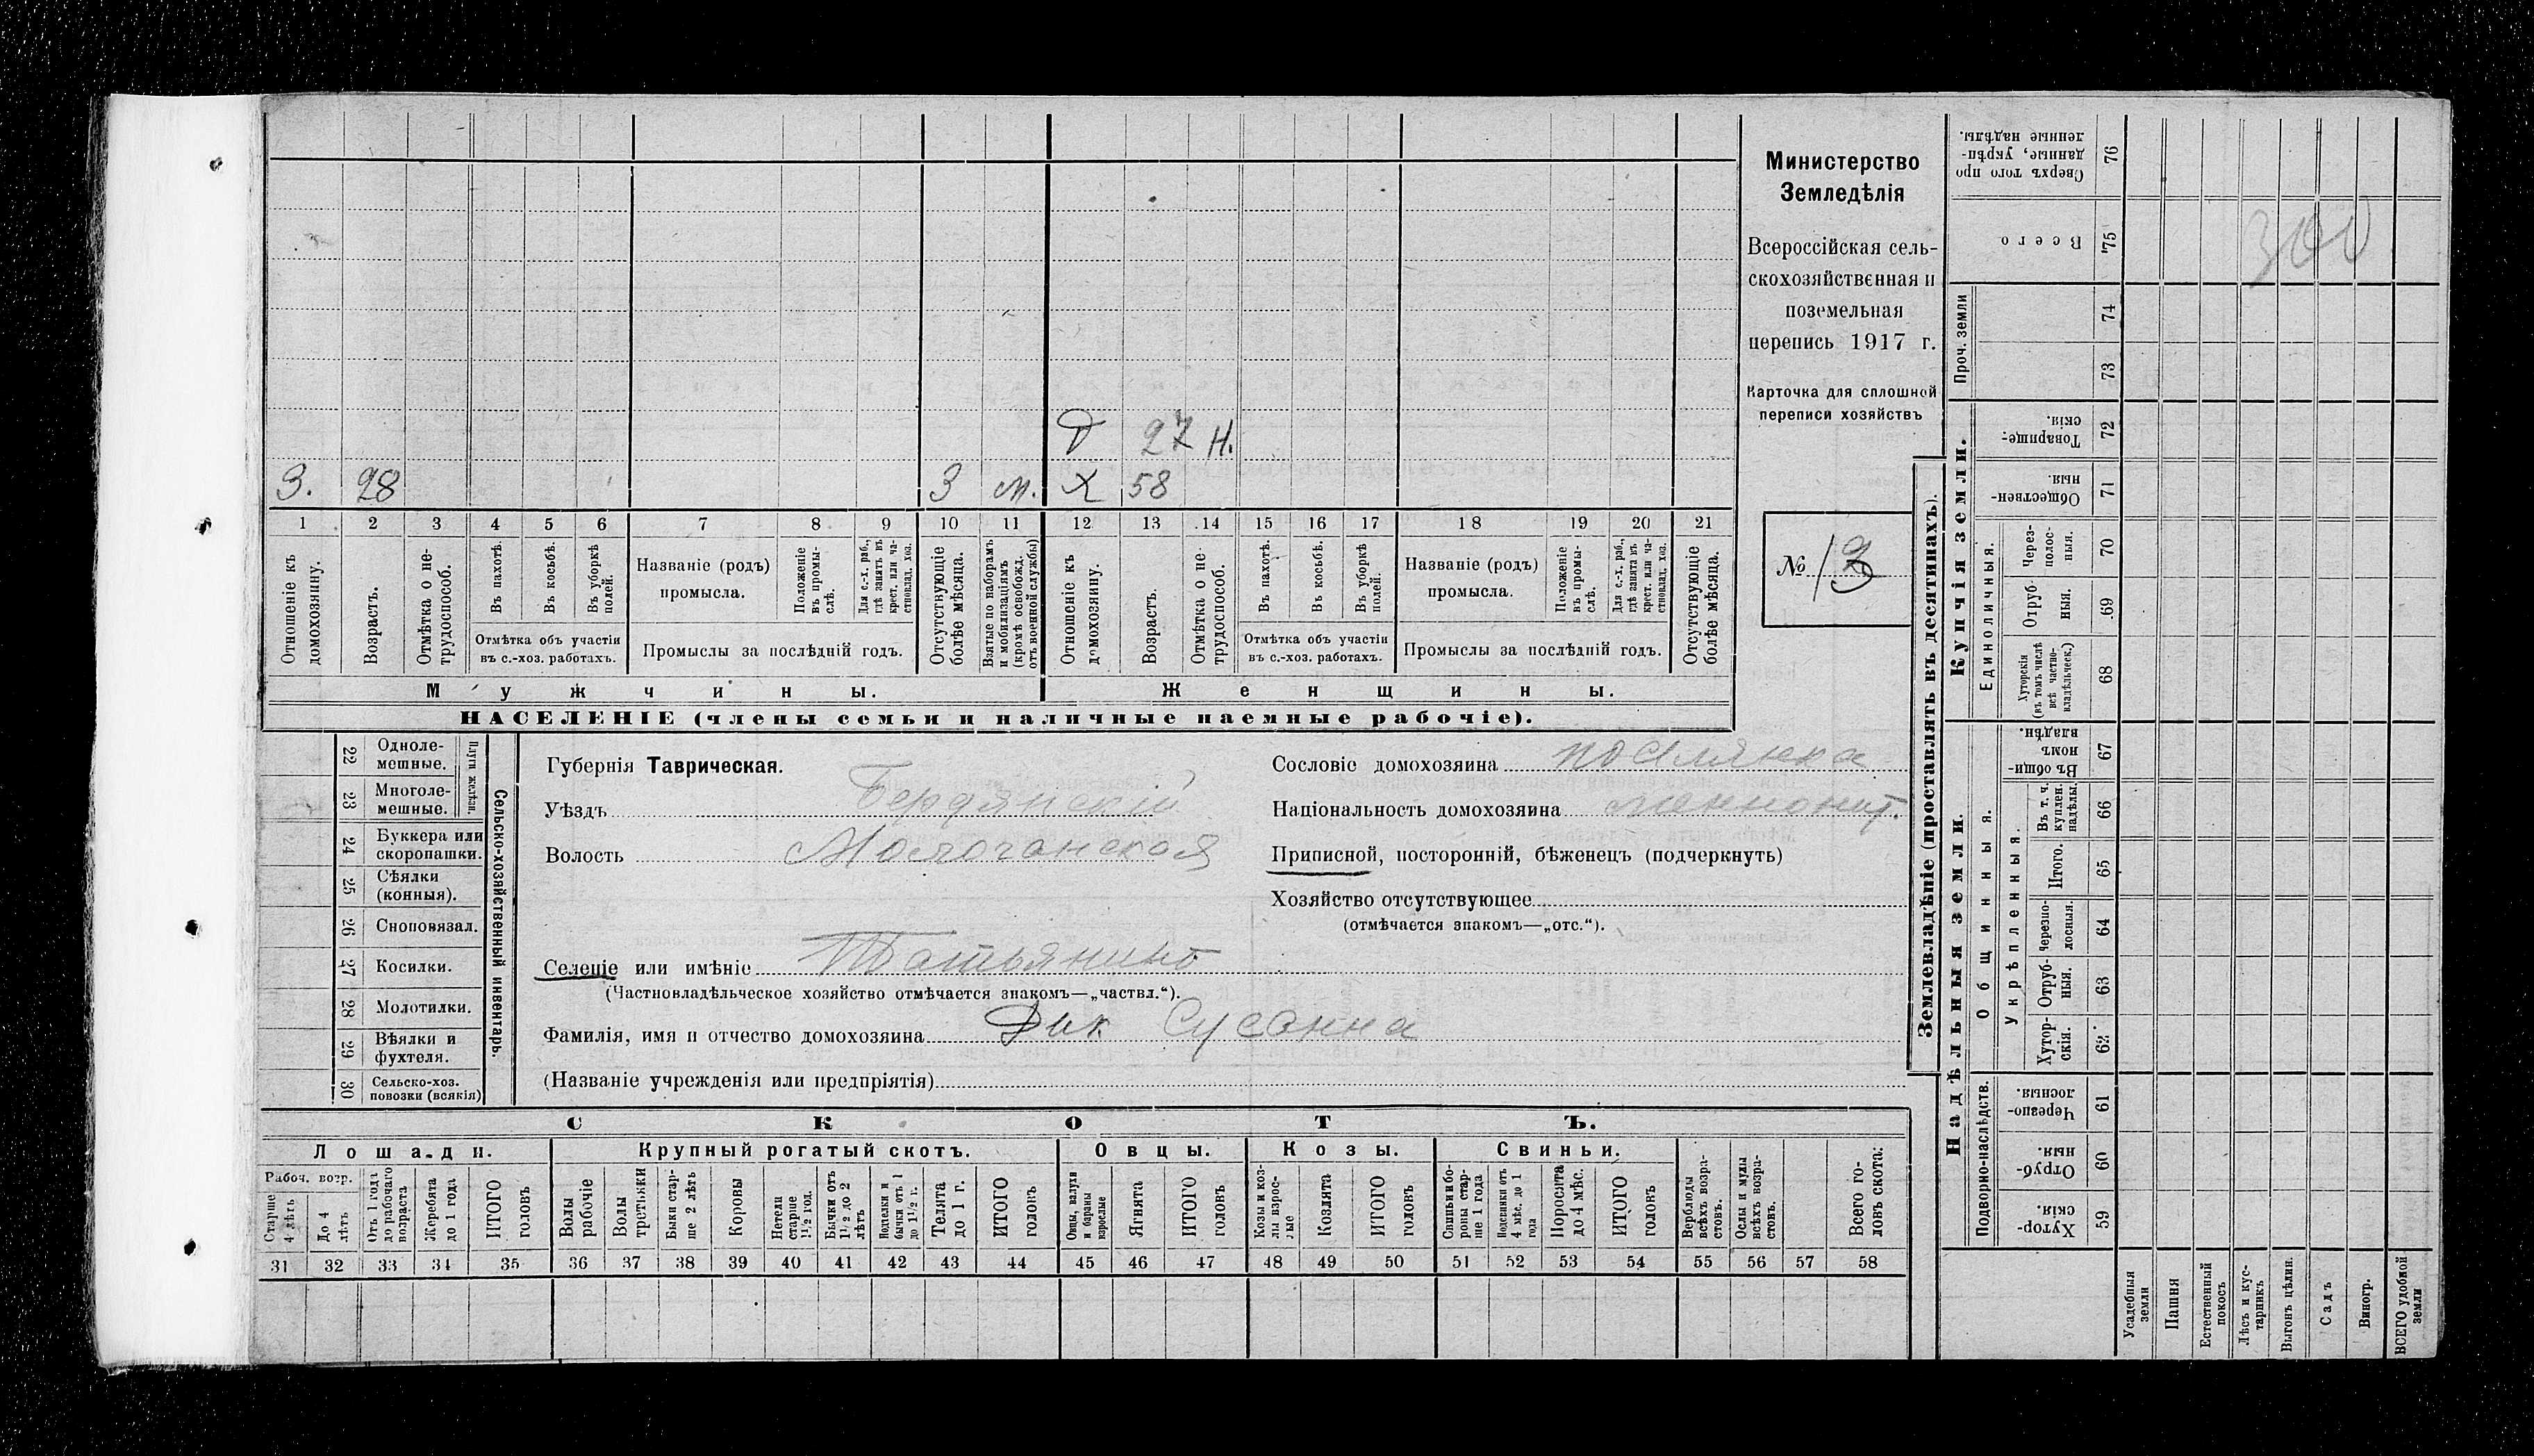 З. 28 3 м. Х 58
Д 27 Н.
1 2 3 4 5 6 7 8 9 10 11 12 13 14 15 16 17 18 19 20 21
Отношеніе къ домохозяину.
Возрастъ.
Отмѣтка о не-
трудоспособ.
Въ пахотѣ.
Въ косьбѣ.
Въ уборкѣ
полей.
Отмѣтка объ участіи
въ с.-хоз. работахъ.
Названіе (родъ)
промысла.
Положеніе
въ промы-
слѣ.
Для с.-х. раб.,
гдѣ занятъ въ
крест. или ча-
стновлад. хоз.
Промыслы за послѣдній годъ.
Отсутствующіе
болѣе мѣсяца.
Взятые по наборамъ
и мобилизаціямъ
(кромѣ освобожд.
отъ военной службы)
Отношеніе къ
домохозяину.
Возрастъ.
Отмѣтка о не-
трудоспособ.
Въ пахотѣ.
Въ косьбѣ.
Въ уборкѣ
полей.
Отмѣтка объ участіи
въ с.-хоз. работахъ.
Названіе (родъ)
промысла.
Положеніе
въ промы-
слѣ.
Для с.-х. раб.,
гдѣ занята въ
крест. или ча-
стновлад. хоз.
Промыслы за послѣдній годъ.
Отсутствующіе
болѣе мѣсяца.
Мужчины.
Женщины.
НАСЕЛЕНІЕ (члены семьи и наличные наемные рабочіе).
Министерство
Земледѣлія
Всероссійская сель-
скохозяйственная и
поземельная
перепись 1917 г.
Карточка для сплошной
переписи хозяйствъ
№ 13
22 Одноле-
мешные.
23 Многоле-
мешные.
Плуги желѣзн.
24 Буккера или
скоропашки.
25 Сѣялки
(конныя).
26 Сноповязал.
27 Косилки.
28 Молотилки.
29 Вѣялки и
фухтеля.
30 Сельско-хоз.
повозки (всякія)
Сельско-хозяйственный инвентарь.
Губернія Таврическая.
Уѣздъ Бердянскій
Волость Молочанская
Селеніе или имѣніе Татьянино
(Частновладѣльческое хозяйство отмѣчается знакомъ—„частвл.“).
Фамилія, имя и отчество домохозяина Дик Сусанна
(Названіе учрежденія или предпріятія)
Сословіе домохозяина поселянка
Національность домохозяина меннонит.
Приписной, посторонній, бѣженецъ (подчеркнуть)
Хозяйство отсутствующее
(отмѣчается знакомъ—„отс.“).
СКОТЪ.
Лошади.
Крупный рогатый скотъ.
Овцы.
Козы.
Свиньи.
Рабоч. возр.
Старше
4 лѣтъ
До 4
лѣтъ
Отъ 1 года
до рабочаго
возраста
Жеребята
до 1 года
ИТОГО
головъ
Волы
рабочіе
Волы
третьяки
Быки стар-
ше 2 лѣтъ
Коровы
Нетели
старше
1½ год.
Бычки отъ
1½ до 2
лѣтъ
Телята
до 1 г.
ИТОГО
головъ
Овцы, валухи
и бараны
взрослые
Ягнята
ИТОГО
головъ
Козы и коз-
лы взрос-
лые
Козлята
ИТОГО
головъ
Свиньи и бо-
ровы стар-
ше 1 года
Подсвинки отъ
4 мѣс. до 1
года
Поросята
до 4 мѣс.
ИТОГО
головъ
Верблюды
всѣхъ возра-
стовъ.
Ослы и мулы
всѣхъ возра-
стовъ.
Всего го-
ловъ скота:
31 32 33 34 35 36 37 38 39 40 41 42 43 44 45 46 47 48 49 50 51 52 53 54 55 56 57 58
Землевладѣніе (проставлять въ десятинахъ).
Купчія земли.
Надѣльныя земли.
Проч. земли
Единоличныя.
Общинныя.
Укрѣпленныя.
Подворно-наслѣдств.
Сверхъ того про
данные, укрѣп-
ленные надѣлы.
76
Всего
75
300
74
73
Товарище-
скія.
72
Обществен-
ныя
71
Через-
полос-
ныя.
70
Отруб-
ныя.
69
Хуторскія
(въ томъ числѣ
всѣ частно-
владѣльческ.)
68
Въ общи-
номъ
владѣн.
67
Въ т. ч.
куплен.
надѣлы.
66
Итого.
65
Черезпо-
лосныя.
64
Отруб-
ныя.
63
Хутор-
скія.
62
Черезпо-
лосныя
61
Отруб-
ныя.
60
Хутор-
скія.
59
Усадебныя
земли
Пашня
Естественный
покосъ
Лѣсъ и кус-
тарникъ
Выгонъ цѣлин.
Садъ
Виногр.
ВСЕГО удобной
земли